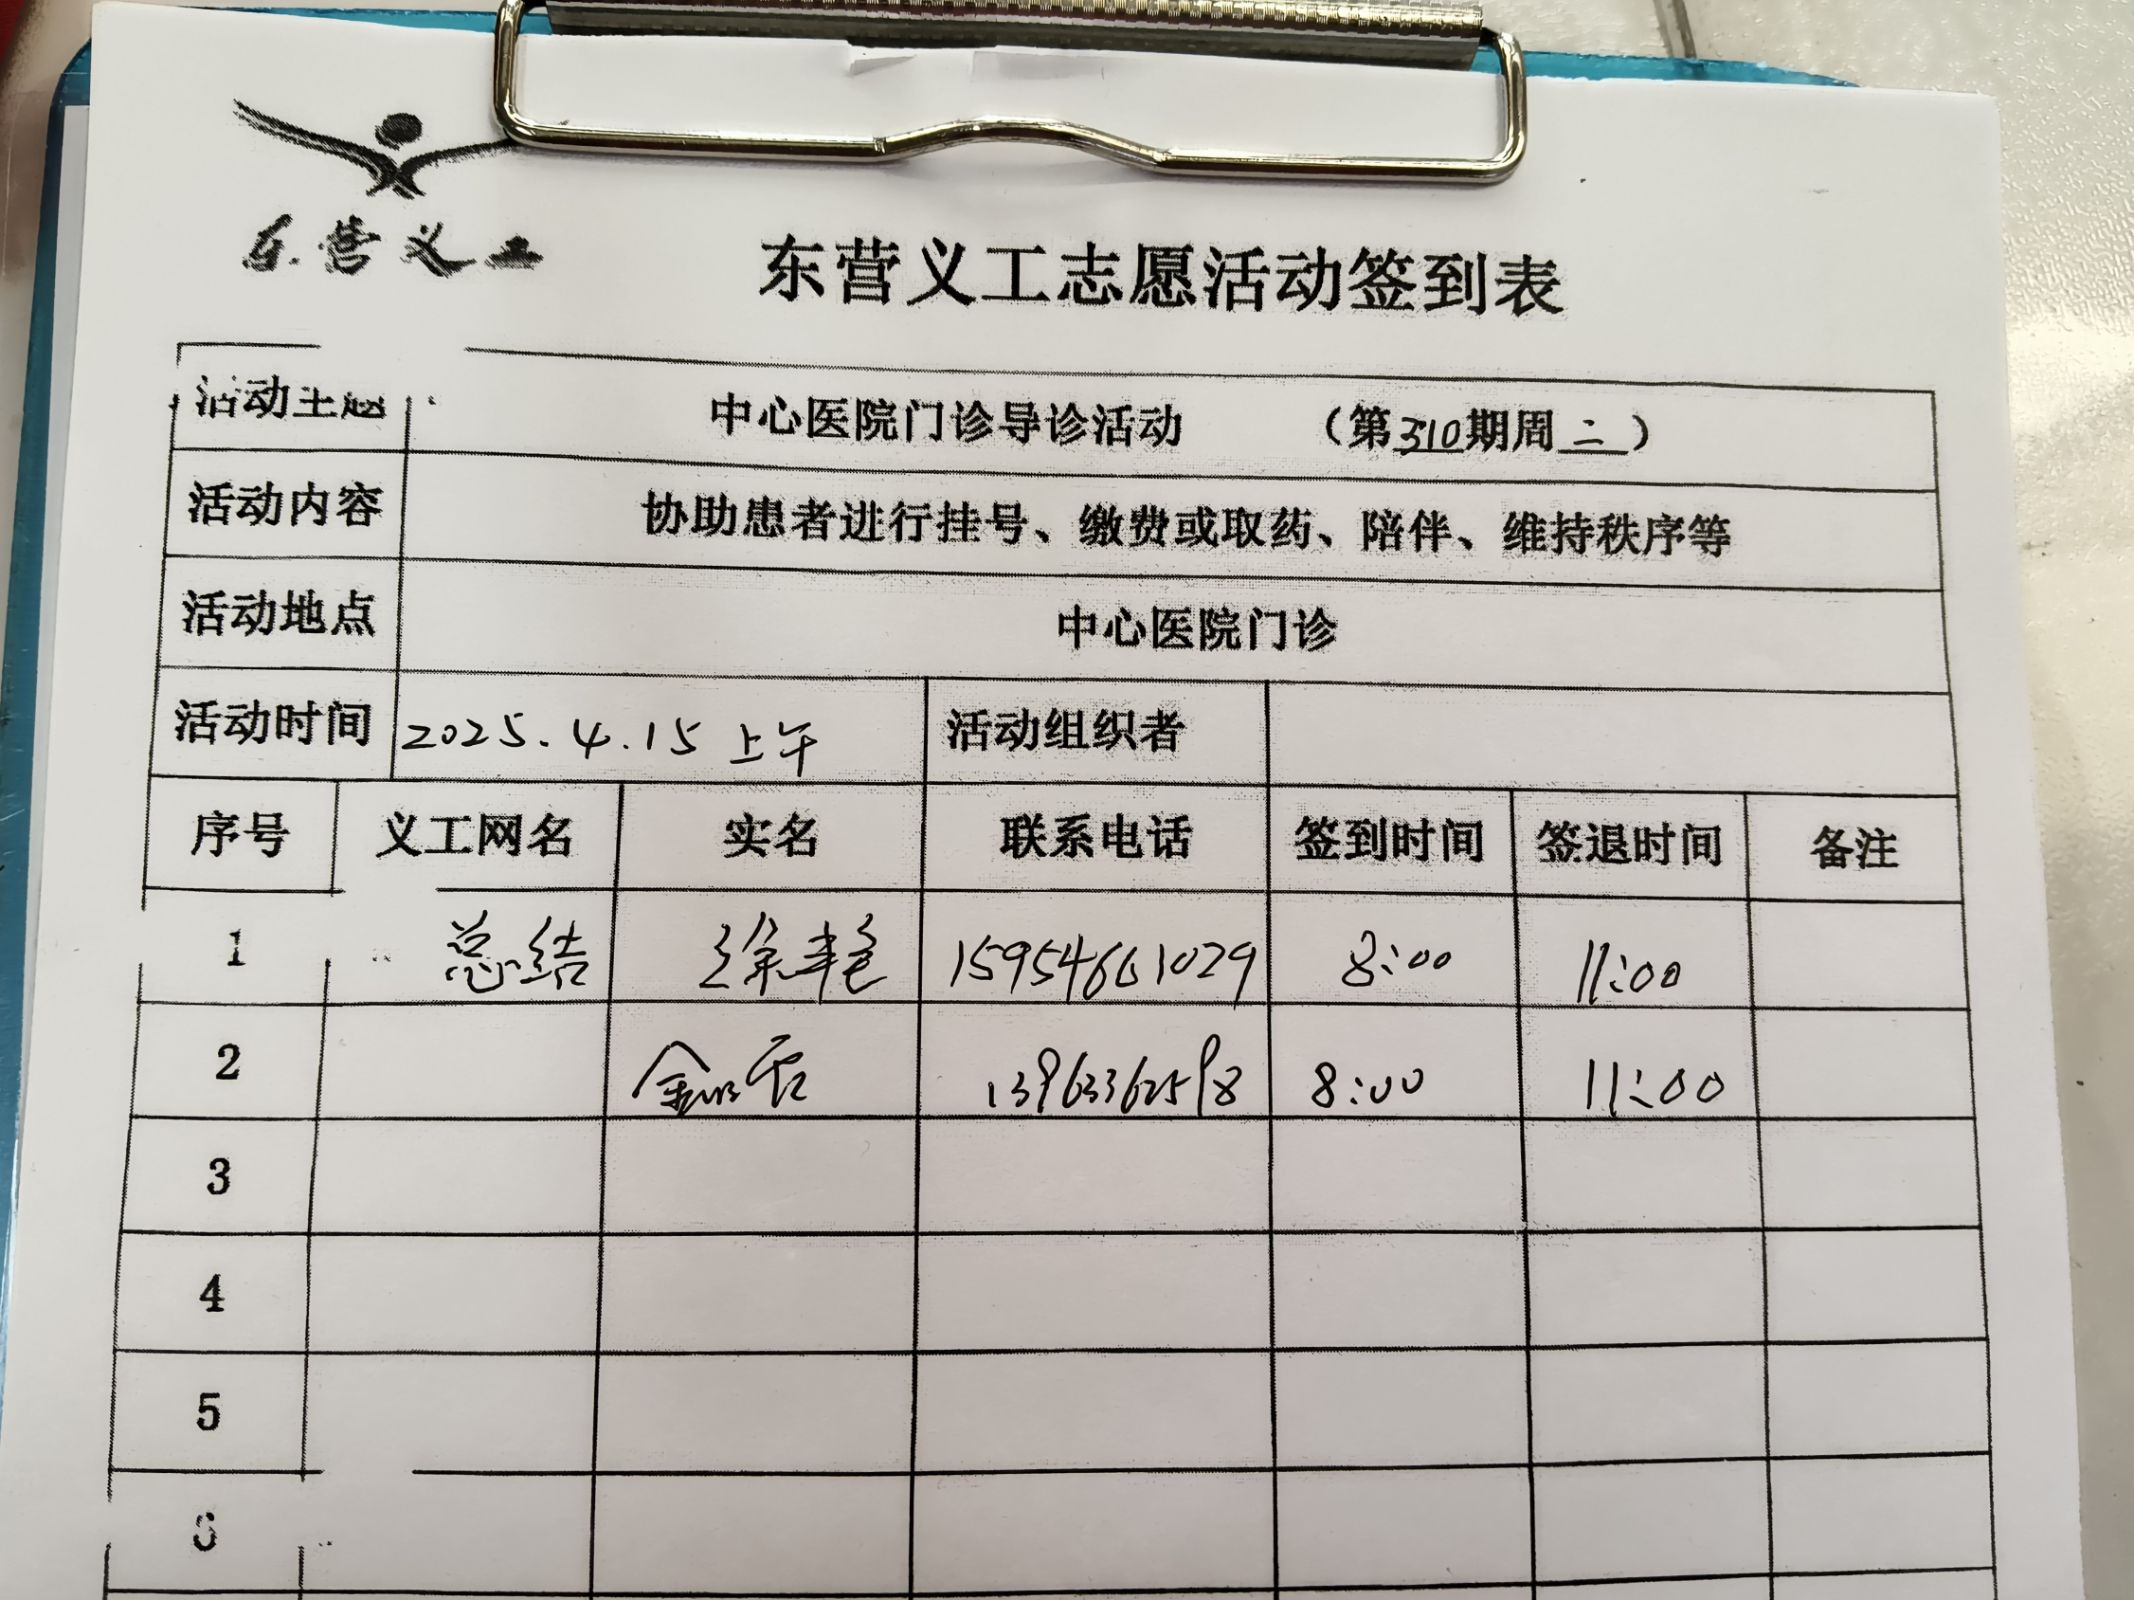 东营义工
东营义工志愿活动签到表
活动主题 中心医院门诊导诊活动 （第310期周二）
活动内容 协助患者进行挂号、缴费或取药、陪伴、维持秩序等
活动地点 中心医院门诊
活动时间 2025.4.15 上午 活动组织者
序号 义工网名 实名 联系电话 签到时间 签退时间 备注
1 总结 徐艳 15954661029 8:00 11:00
2 13963362598 8:00 11:00
3
4
5
6